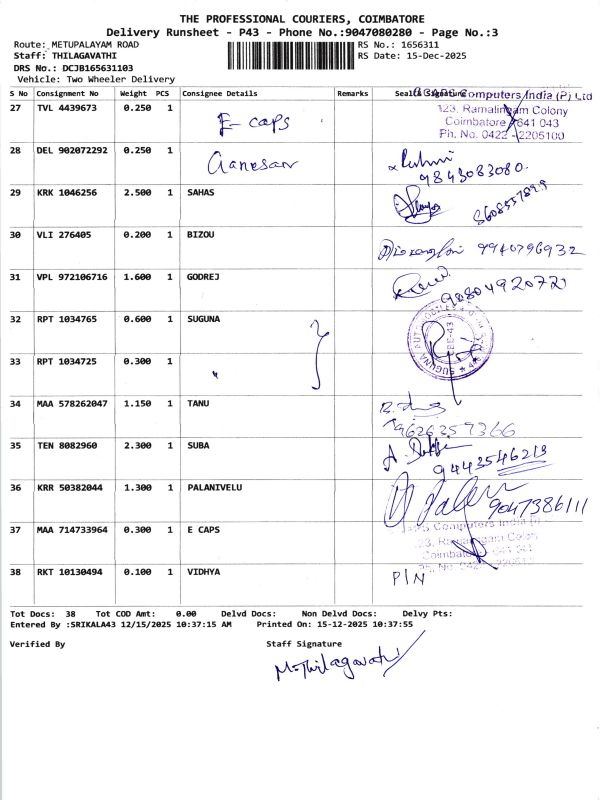 THE PROFESSIONAL COURIERS, COIMBATORE
Delivery Runsheet - P43 - Phone No.:9047080280 - Page No.:3
Route: METUPALAYAM ROAD RS No.: 1656311
Staff: THILAGAVATHI RS Date: 15-Dec-2025
DRS No.: DCJB165631103
Vehicle: Two Wheeler Delivery
S No Consignment No Weight PCS Consignee Details Remarks Seal& Signature
Computers India (P) Ltd
27 TVL 4439673 0.250 1 E caps
123, Ramalingam Colony
Coimbatore - 641 043
Ph. No. 0422 - 2205100
28 DEL 902072292 0.250 1 Ganesan
9843083080.
29 KRK 1046256 2.500 1 SAHAS
30 VLI 276405 0.200 1 BIZOU 9940796932
31 VPL 972106716 1.600 1 GODREJ 9880492072
32 RPT 1034765 0.600 1 SUGUNA
33 RPT 1034725 0.300 1 "
34 MAA 578262047 1.150 1 TANU
9626359366
35 TEN 8082960 2.300 1 SUBA
9443546213
36 KRR 50382044 1.300 1 PALANIVELU 9047386111
37 MAA 714733964 0.300 1 E CAPS
Computers India
38 RKT 10130494 0.100 1 VIDHYA PIN
Tot Docs: 38 Tot COD Amt: 0.00 Delvd Docs: Non Delvd Docs: Delvy Pts:
Entered By :SRIKALA43 12/15/2025 10:37:15 AM Printed On: 15-12-2025 10:37:55
Verified By Staff Signature
M.Thilagavathi